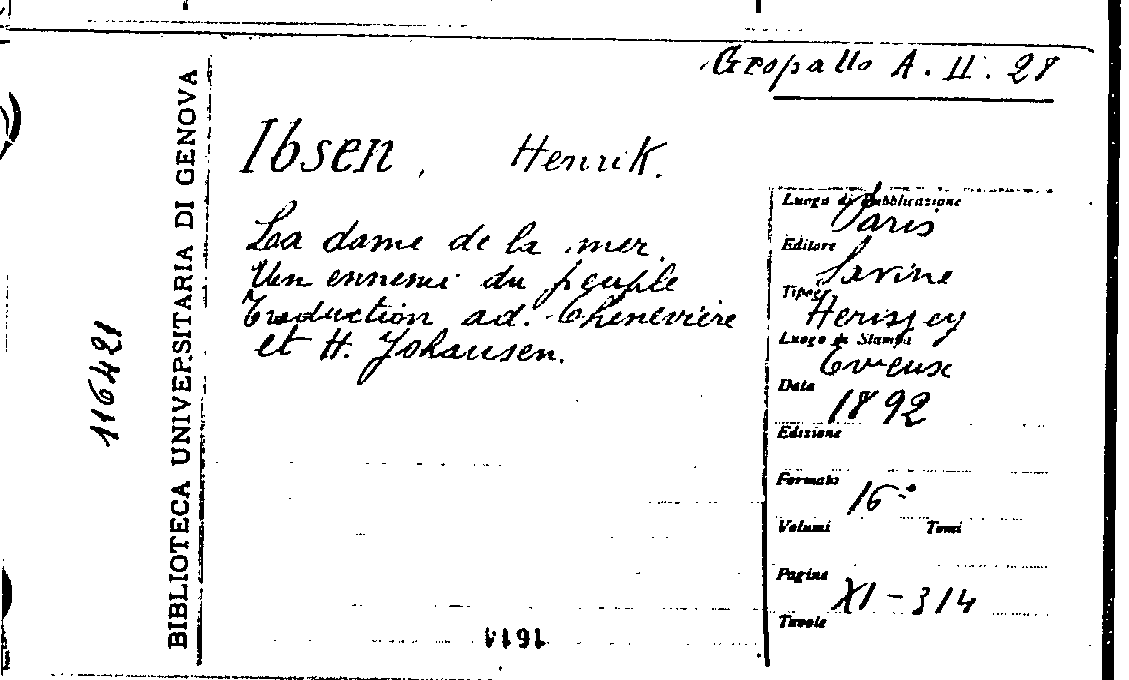 Gropallo A. II. 28
Ibsen, Henrik.
La dame de la mer.
Un ennemi du peuple
Traduction ad. Chenevière
et H. Johansen.
Luogo di Pubblicazione
Paris
Editore
Savine
Tipogr.
Herissey
Luogo di Stampa
Evreux
Data
1892
Edizione
Formato
16°
Volumi Tomi
Pagine
XI-314
Tavole
BIBLIOTECA UNIVERSITARIA DI GENOVA
116421